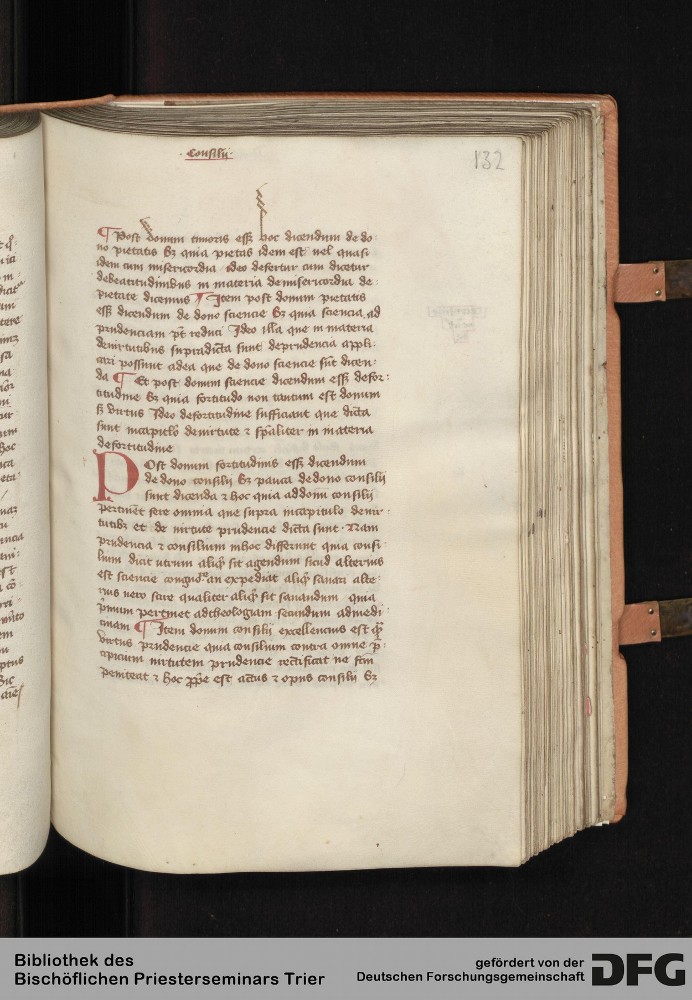 · Consilii ·
132
¶ Post donum timoris esse hoc dicendum de do
no pietatis sz quia pietas idem est uel quasi
idem cum misericordia ideo defertur cum dicetur
debeatitudinibus in materia demisericordia de
pietate dicemus ¶ Item post donum pietatis
esse dicendum de dono sciencie sz quia sciencia ad
prudenciam pt reduci Ideo illa que in materia
deuirtutibus supradicta sunt deprudencia appli
cari possunt adea que de dono sciencie sunt dicen
da ¶ Et post donum sciencie dicendum esse defor
titudine sz quia fortitudo non tantum est donum
sz virtus Ideo defortitudine sufficiant que dicta
sunt incapitulo deuirtute et spiritualiter in materia
defortitudine
Post donum fortitudinis esse dicendum
de dono consilii sz pauca dedono consilii
sunt dicenda et hoc quia addonum consilii
pertinent fere omnia que supra incapitulo deuir
tutibus et de uirtute prudencie dicta sunt Nam
prudencia et consilium inhoc differunt quia consi
lium dicit utrum aliquid sit agendum sicud alterius
est sciencie an expediat aliquem sanari alte
rius uero scire qualiter aliquis sit sanandum quia
primum pertinet adtheologiam secundum admedi
cinam ¶ Item donum consilii excellencius est quam
virtus prudencie quia consilium contra omne
uirtutem prudencie rectificat ne
peniteat et hoc proprie est actus et opus consilii sz
Bibliothek des
Bischöflichen Priesterseminars Trier
gefördert von der
Deutschen Forschungsgemeinschaft
DFG